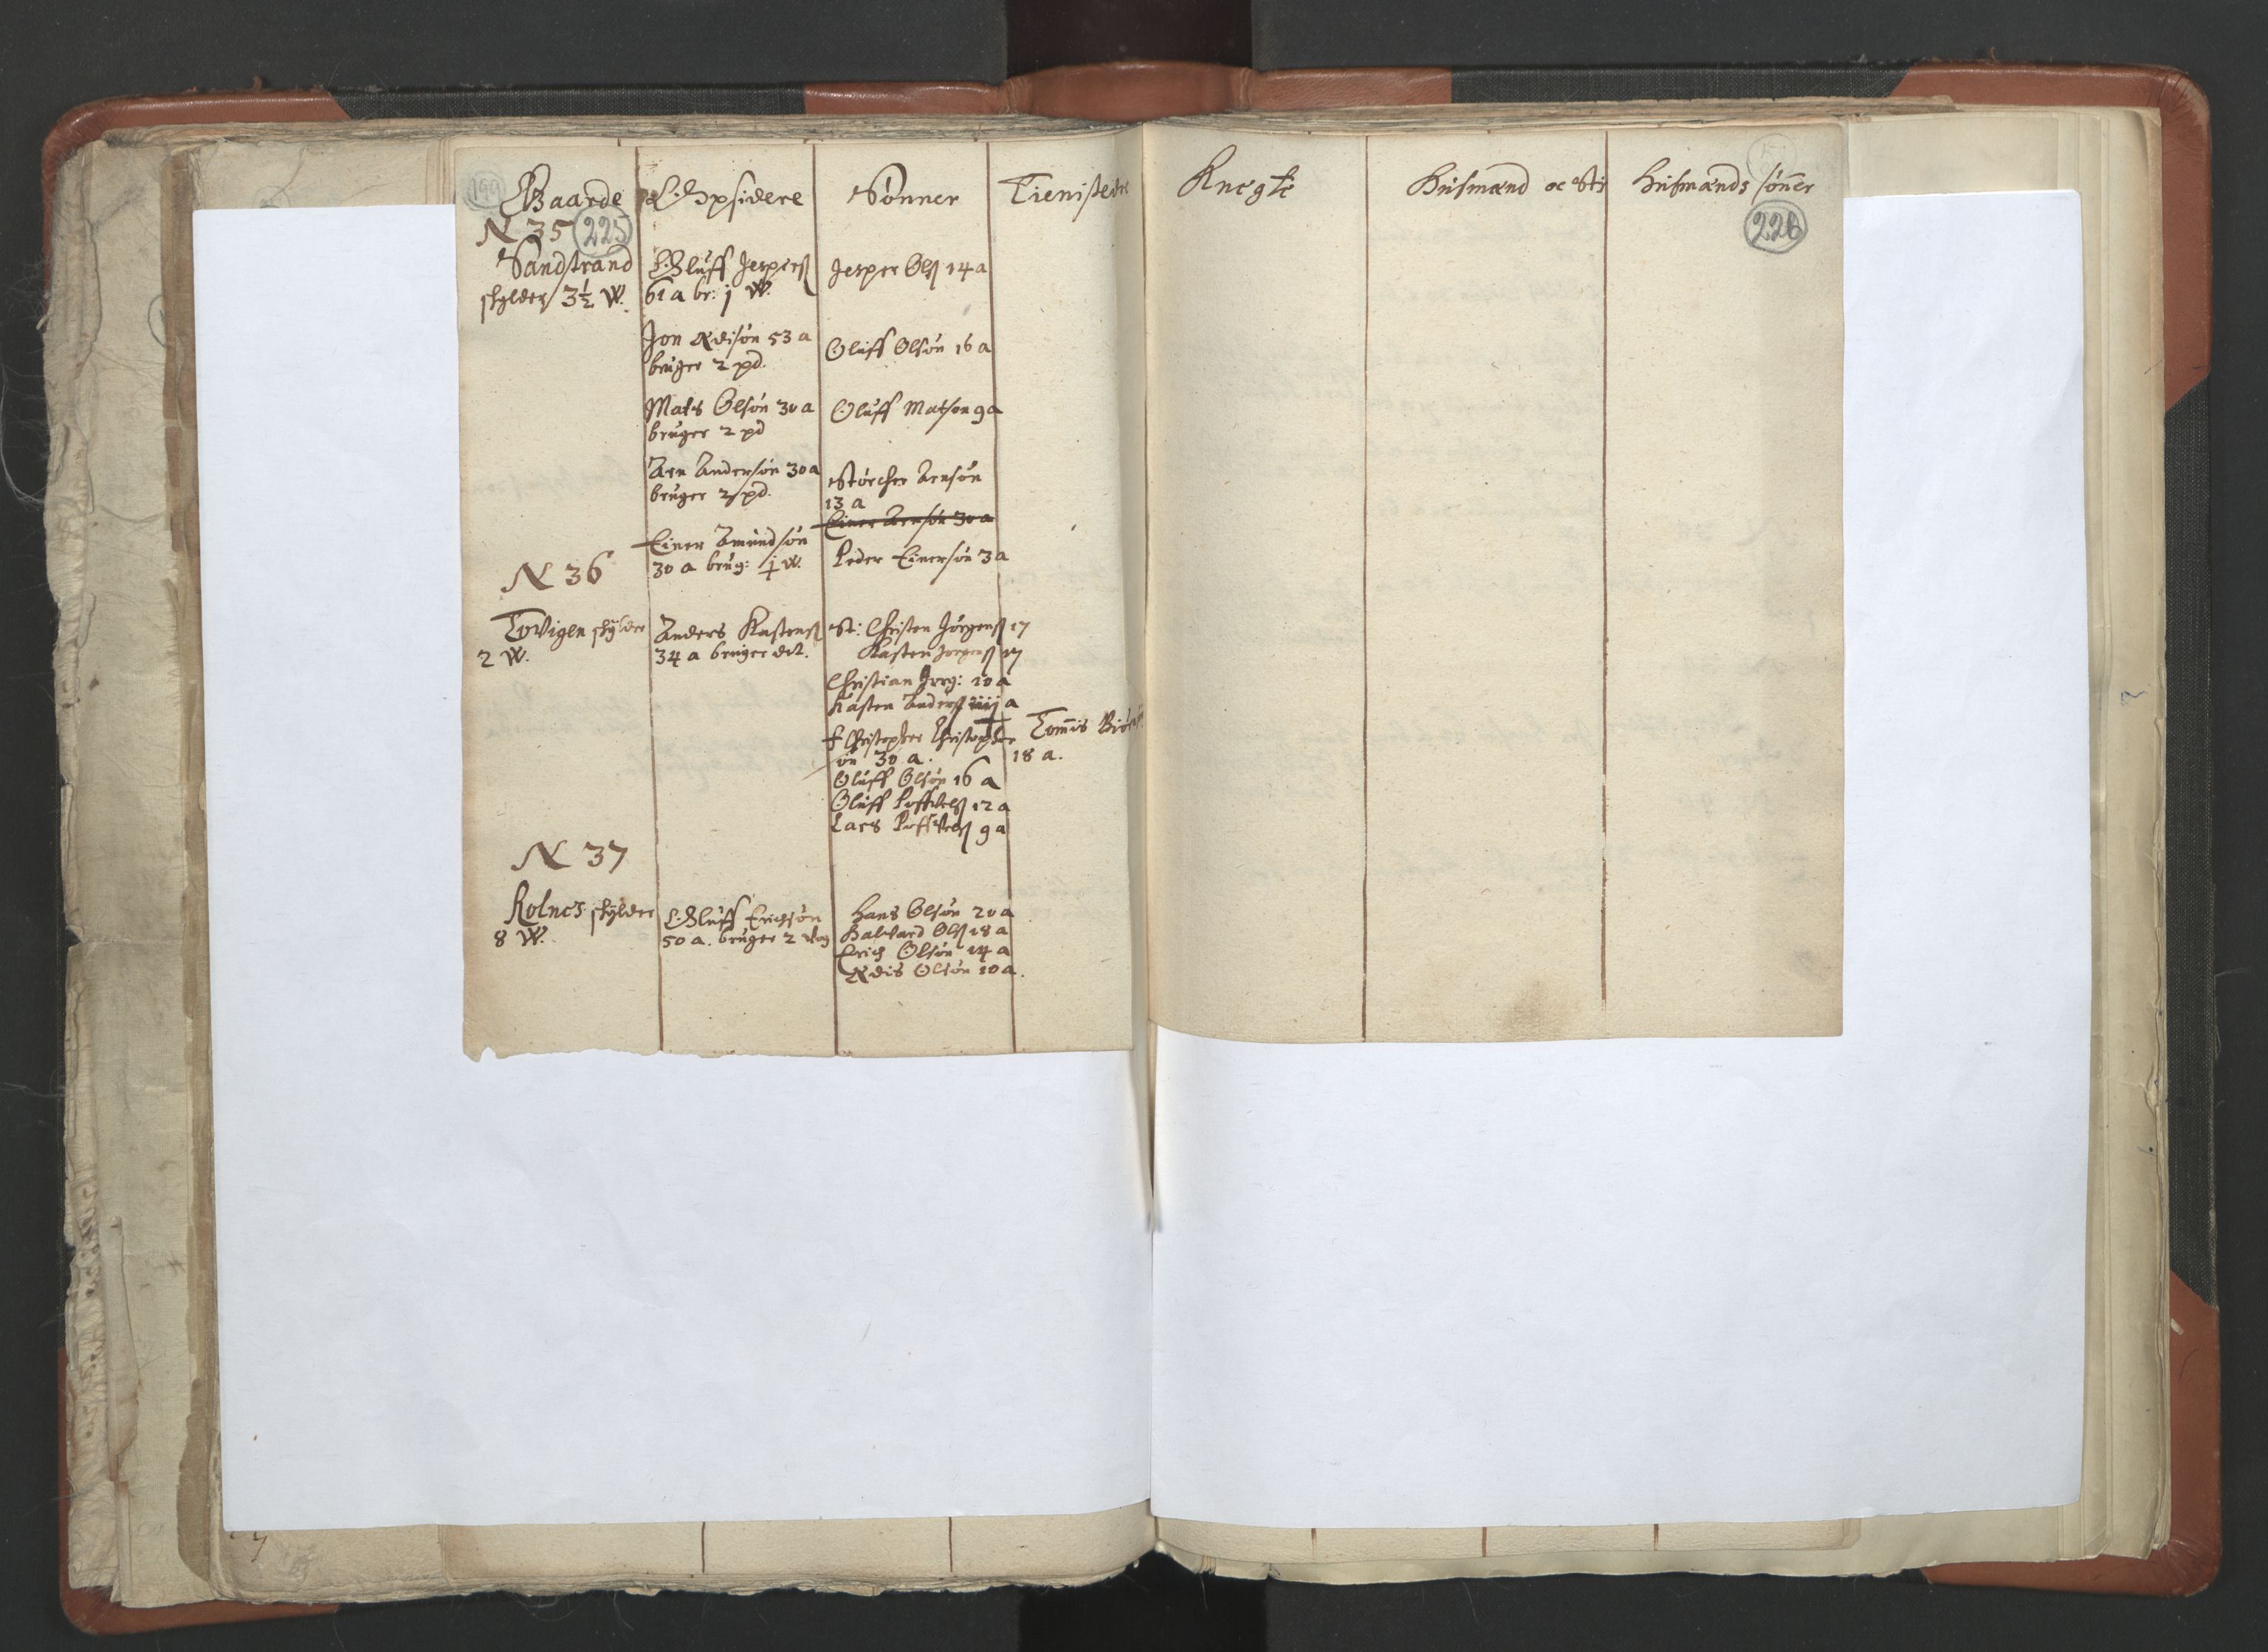 199
Gaarde
Opsidere
Sønner
Tieniste
Knegte
Husmænd oc Sti
Husmænds sønner
N 35
225
226
Sandstrand
skylder 3½ W.
Oluff Jesperß
61 a br: j W.
Jesper Olß 14 a
Jon Ædisøn 53 a
bruger 2 pd.
Oluff Olsøn 16 a
Mats Olsøn 30 a
bruger 2 pd
Oluff Matson 9 a
Arn Andersøn 30 a
bruger 2 pd.
Størcher Arnsøn
13 a
Einer Arnsøn 30 a
Einer Amundsøn
30 a brug: ½ W.
Peder Einersøn 3 a
N 36
Tovigen skylder
2 W.
Anders Kastenß
34 a bruger det.
St: Christen Jørgenß 17
Kasten Jørgenß 17
Christian Jørg: 10 a
Kasten Anderß iiij a
† Christopher Christopher
øn 30 a.
Oluff Olsøn 16 a
Oluff 12 a
Lars 9 a
Tomis
18 a.
N 37
Rolnes skylder
8 W.
Oluff Erichsøn
50 a. bruger 2 Wog
Hans Olsøn 20 a
Halvard Olß 18 a
Erich Olsøn 14 a
Ædis Olsøn 10 a.